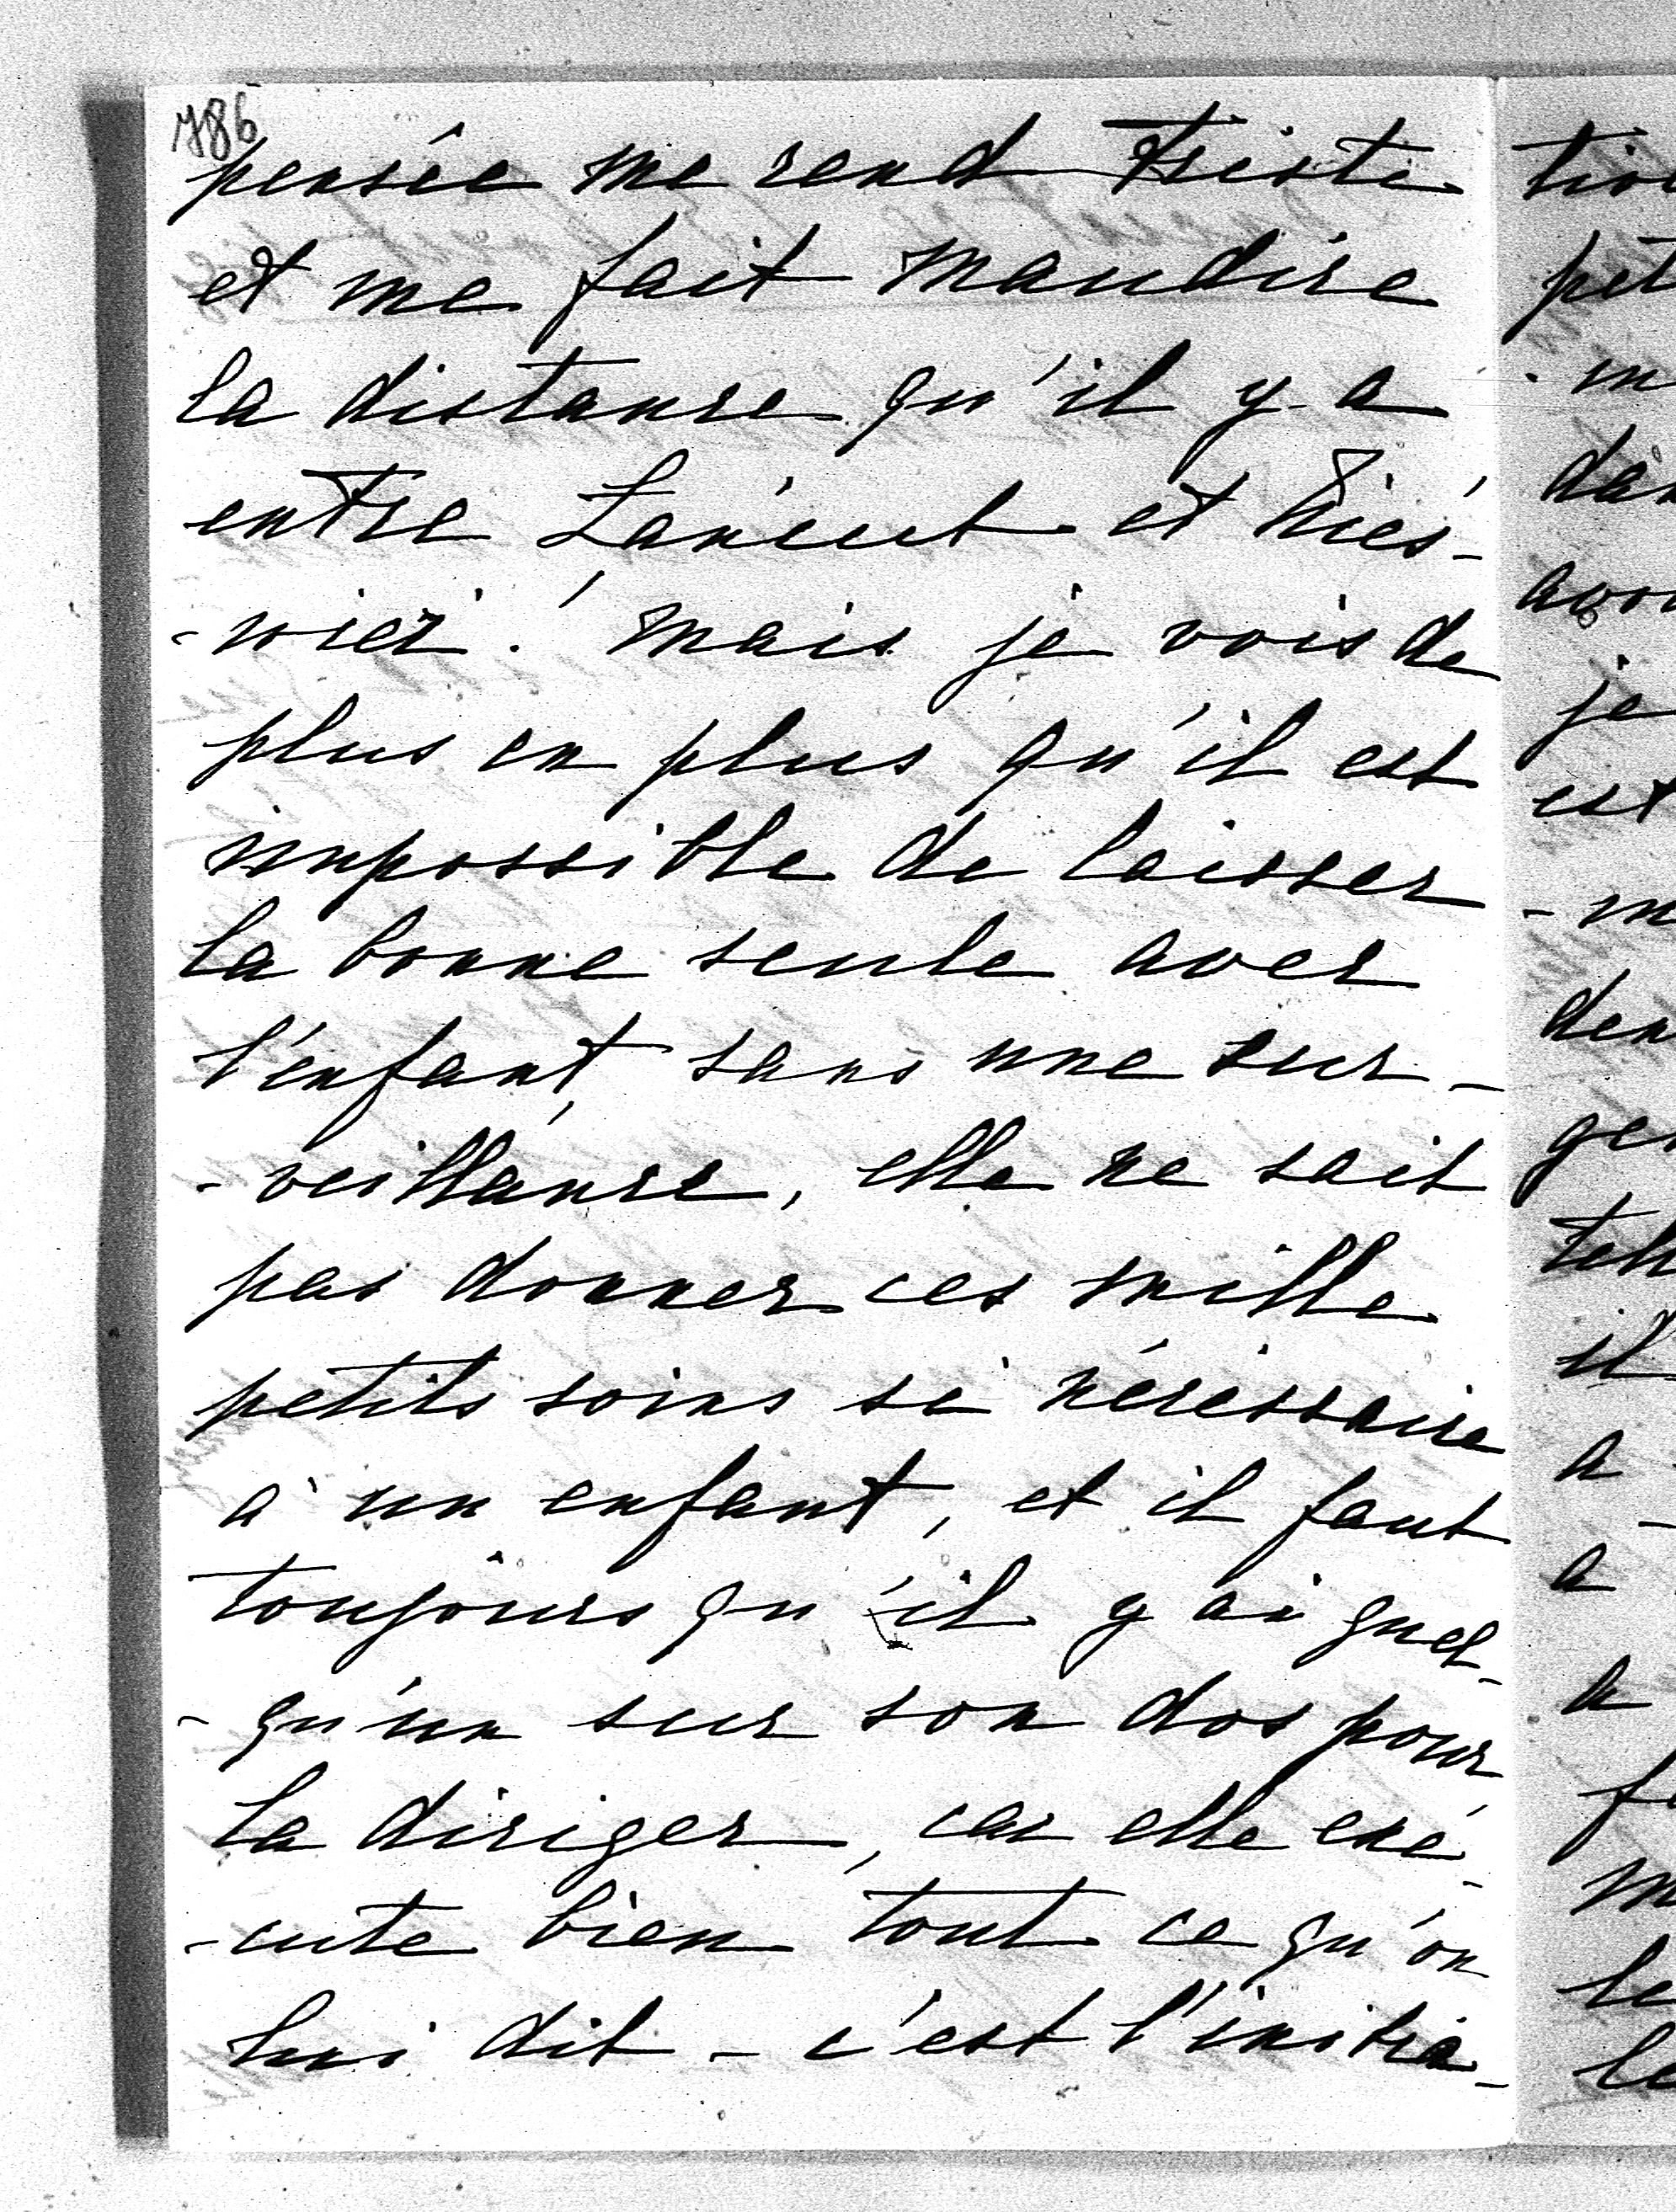 786
pensée me rend triste
et me fait maudire
la distance qu'il y a
entre Lancut et Nies-
-wiez. mais je vois de
plus en plus qu'il est
impossible de laisser
la bonne seule avec
l'enfant sans une sur-
-veillance, elle ne sait
pas donner ces mille
petits soins si nécessaire
à un enfant, et il faut
toujours qu'il y ai quel-
-qu'un sur son dos pour
la diriger, car elle exé-
-cute bien tout ce qu'on
lui dit - c'est l'initia-